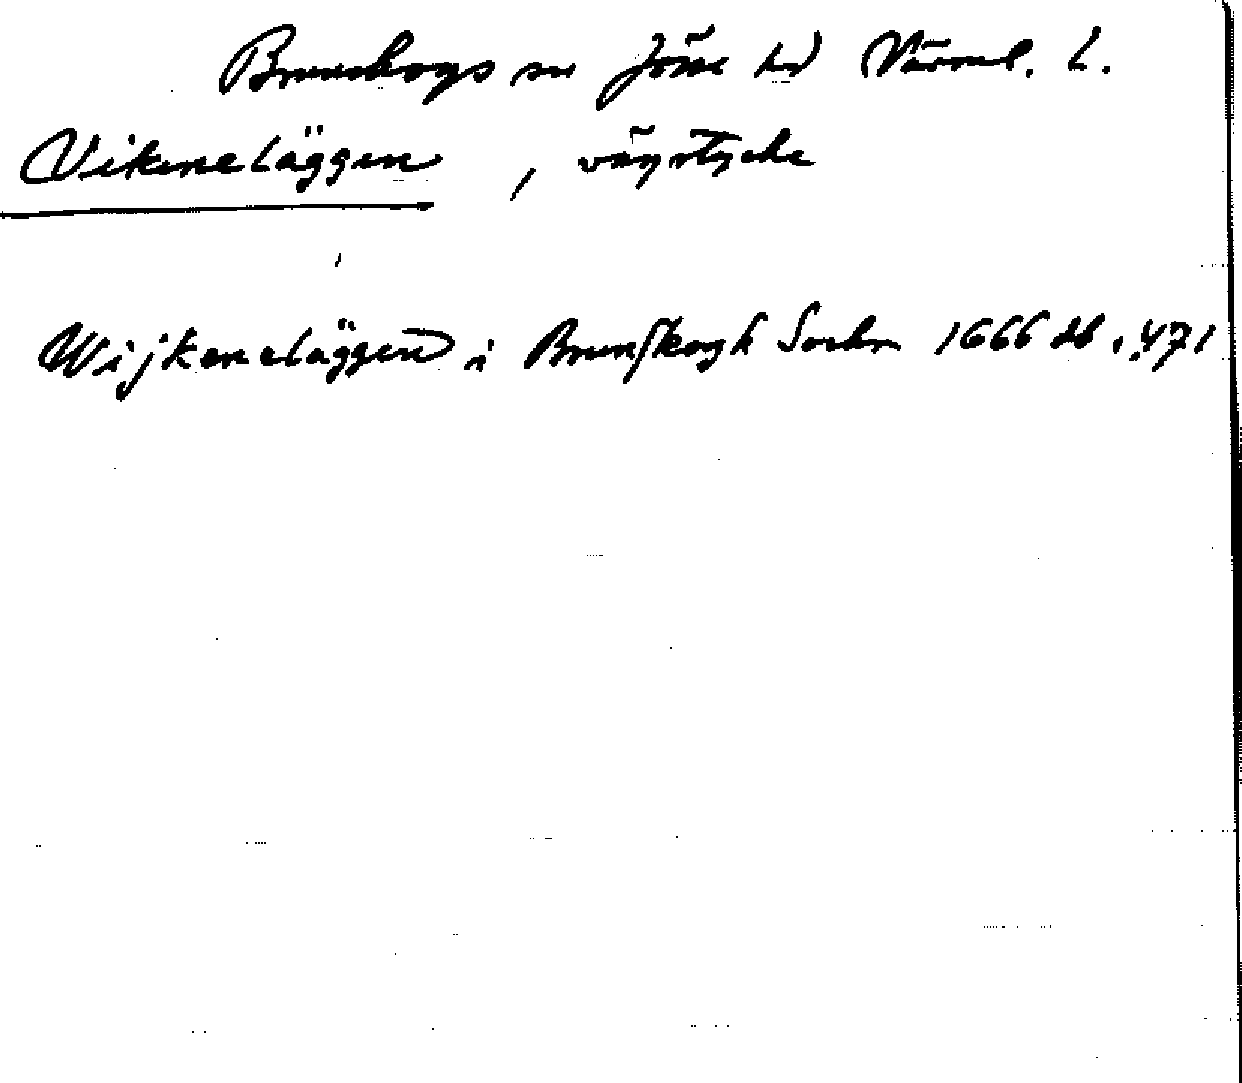 Brunskogs sn Jösse hd Värml. l.
Vikeneläggen , vägstycke
Wijkeneläggen i Brunskogh Sochn 1666 db, 471